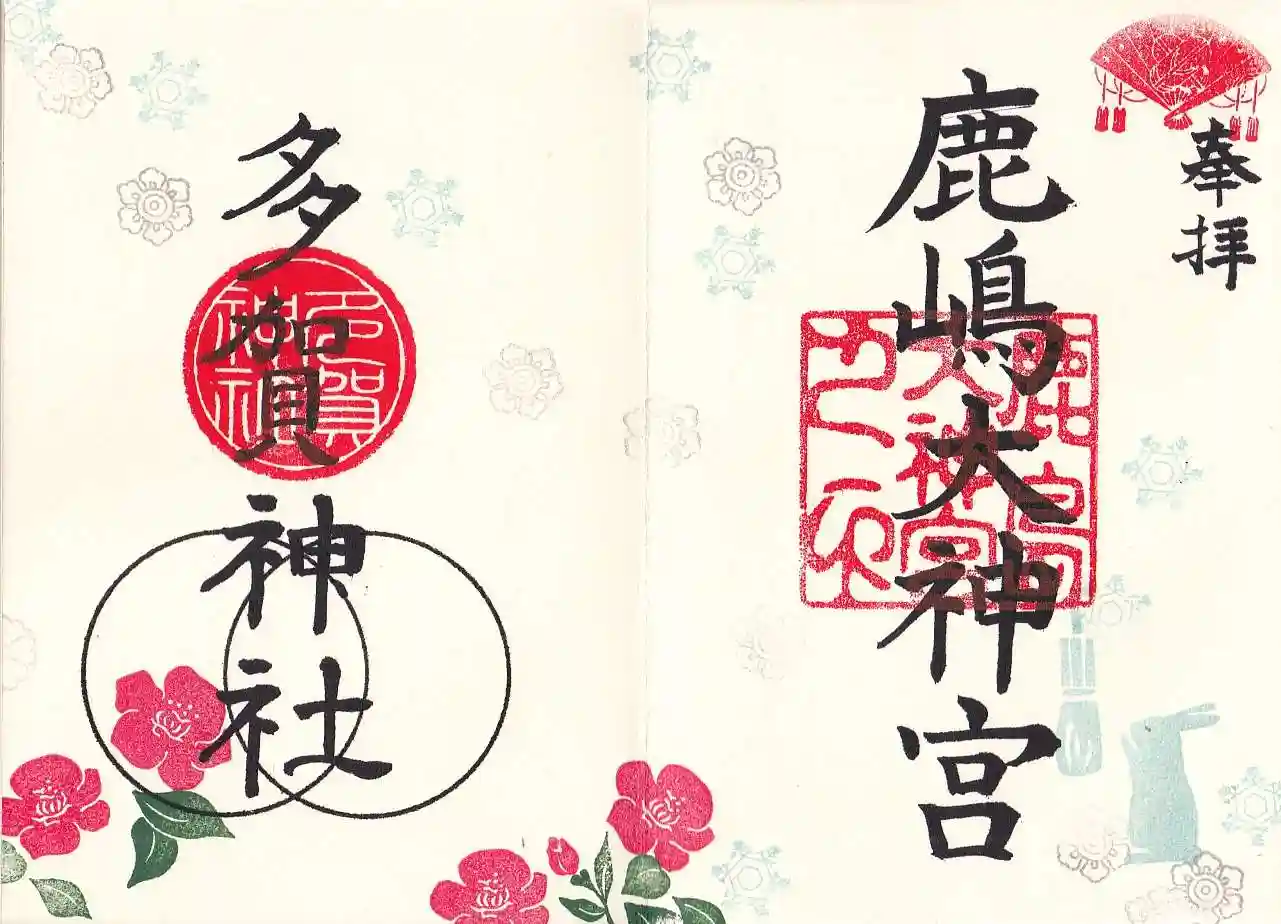 奉拝
鹿嶋大神宮
鹿嶋大神宮之印
多賀神社
多賀神社